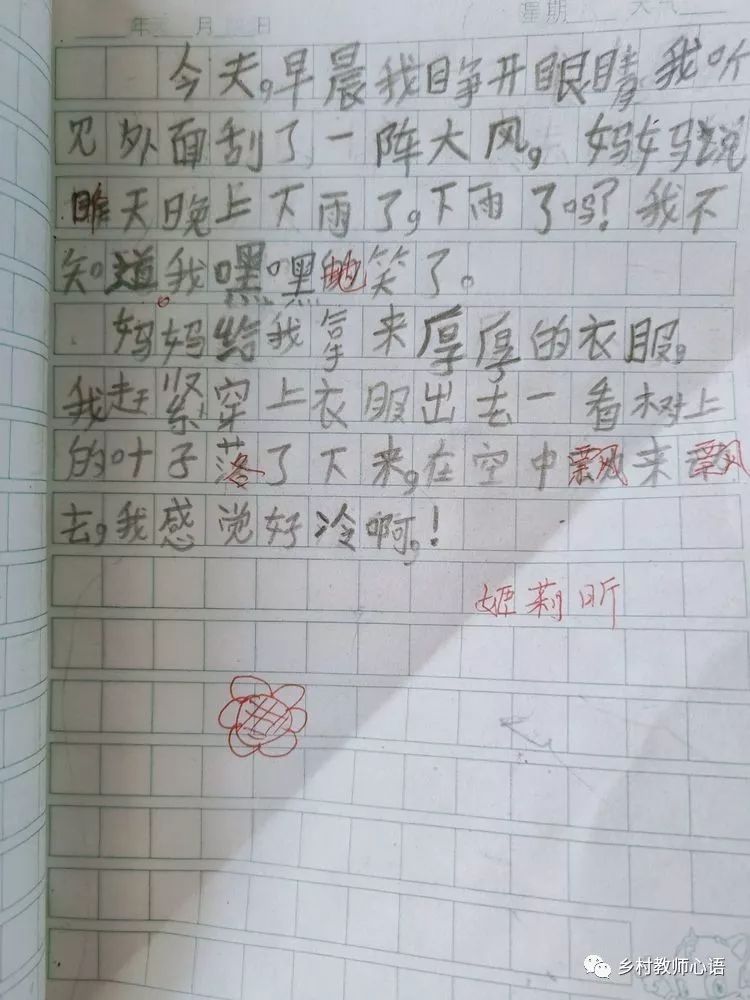 年 月 日 星期 天气
今天,早晨我睁开眼睛我听
见外面刮了一阵大风,妈妈说
昨天晚上下雨了,下雨了吗?我不
知道。我嘿嘿地笑了。
妈妈给我拿来厚厚的衣服。
我赶紧穿上衣服出去一看树上
的叶子落了下来,在空中飘来飘
去,我感觉好冷啊,!
姬莉昕
乡村教师心语